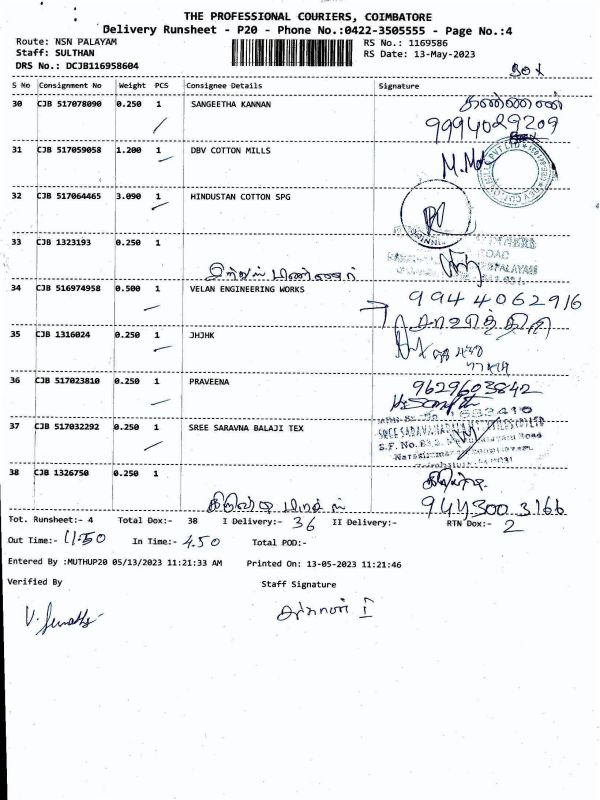 THE PROFESSIONAL COURIERS, COIMBATORE
Delivery Runsheet - P20 - Phone No.:0422-3505555 - Page No.:4
Route: NSN PALAYAM
RS No.: 1169586
Staff: SULTHAN
RS Date: 13-May-2023
DRS No.: DCJB116958604
S No Consignment No Weight PCS Consignee Details Signature
30 CJB 517078090 0.250 1 SANGEETHA KANNAN
கண்ணன்
9994029209
31 CJB 517059058 1.200 1 DBV COTTON MILLS
32 CJB 517064465 3.090 1 HINDUSTAN COTTON SPG
33 CJB 1323193 0.250 1
34 CJB 516974958 0.500 1 VELAN ENGINEERING WORKS
9944062916
35 CJB 1316024 0.250 1 JHJHK
36 CJB 517023810 0.250 1 PRAVEENA
9629603842
37 CJB 517032292 0.250 1 SREE SARAVNA BALAJI TEX
38 CJB 1326750 0.250 1
9443003166
Tot. Runsheet:- 4 Total Dox:- 38 I Delivery:- 36 II Delivery:- RTN Dox:- 2
Out Time:- 11.50 In Time:- 4.50 Total POD:-
Entered By :MUTHUP20 05/13/2023 11:21:33 AM Printed On: 13-05-2023 11:21:46
Verified By Staff Signature